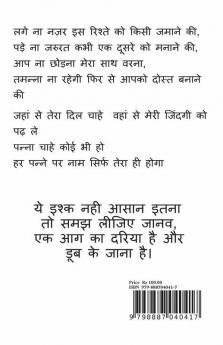 लगे ना नज़र इस रिश्ते को किसी जमाने की,
पड़े ना जरुरत कभी एक दूसरे को मनाने की,
आप ना छोड़ना मेरा साथ वरना,
तमन्ना ना रहेगी फिर से आपको दोस्त बनाने
की
जहां से तेरा दिल चाहे वहां से मेरी जिंदगी को
पढ़ ले
पन्ना चाहे कोई भी हो
हर पन्ने पर नाम सिर्फ तेरा ही होगा
ये इश्क नही आसान इतना
तो समझ लीजिए जानव,
एक आग का दरिया है और
डूब के जाना है।
Price Rs 100.00
ISBN 979-888704041-7
9 798887 040417